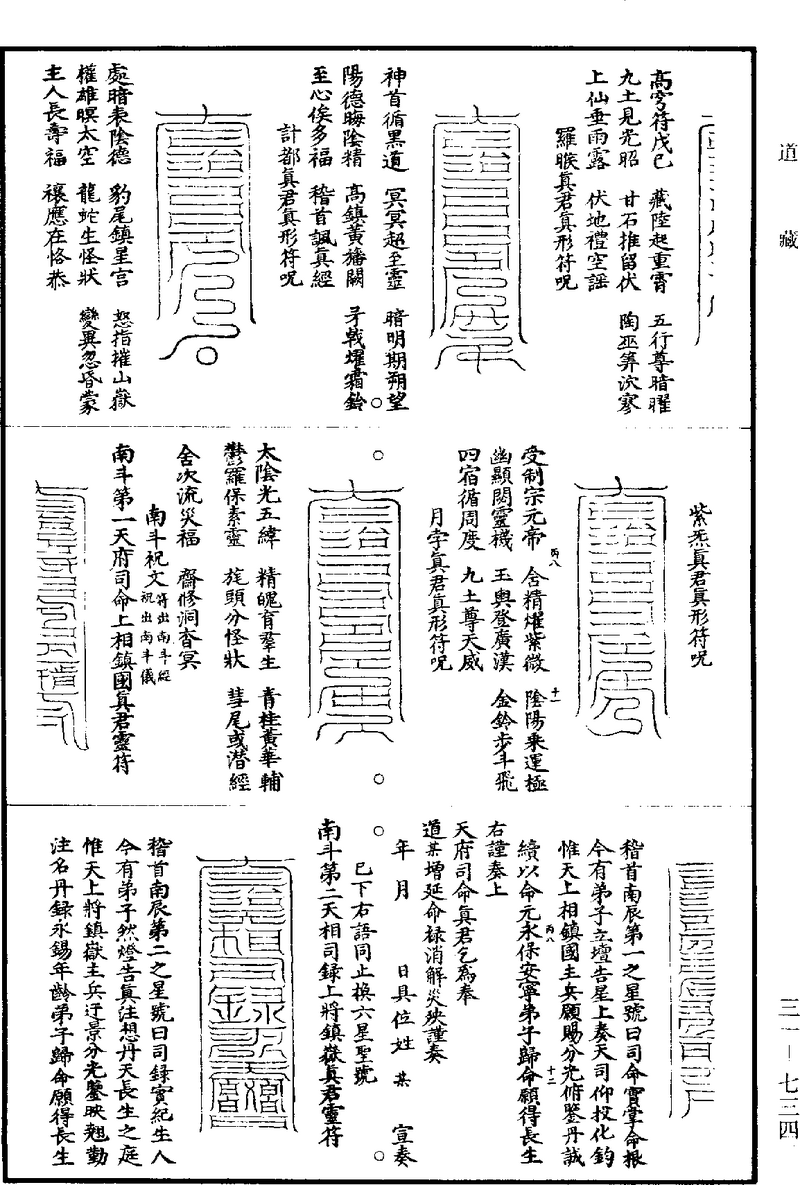 道藏
高穹符戊己 藏陸起重霄 五行尊暗曜
九土見光昭 甘石推留伏 陶巫筭沴寥
上仙垂雨露 伏地禮空謡
羅睺真君真形符呪
神首循黑道 冥冥超至靈 暗明期朔望
陽德晦陰精 高鎮黃旛闕 矛戟燿霜鈴
至心俟多福 稽首諷真經
計都真君真形符呪
處暗表陰德 豹尾鎮星宫 怒指摧山嶽
權雄暝太空 龍蛇生怪狀 變異忽昏蒙
主人長壽福 禳應在恪恭
紫炁真君真形符呪
受制宗元帝 含精燿紫微 陰陽乘運極
幽顯闕靈機 玉輿登廣漢 金鈴步斗飛
四宿循周度 九土尊天威
月孛真君真形符呪
丙八
十一
太陰光五緯 精魄育羣生 青桂黃華輔
鬱羅保素靈 旄頭分怪狀 彗尾或潛經
舍次流災福 齋修洞杳冥
南斗祝文 符出南斗經 祝出南斗儀
南斗第一天府司命上相鎮國真君靈符
稽首南辰第一之星號曰司命實掌命根
今有弟子立壇告星上奏天司仰投化鈞
惟天上相鎮國主兵願賜分光俯鑒丹誠
續以命元永保安寧弟子歸命願得長生
丙八
十二
右謹奏上
天府司命真君乞為奉
道某增延命祿消解災殃謹奏
年 月 日具位姓 某 宣奏
已下右語同止換六星聖號
南斗第二天相司錄上將鎮嶽真君靈符
稽首南辰第二之星號曰司錄實紀生人
今有弟子然燈告真注想丹天長生之庭
惟天上將鎮嶽主兵迂景分光鑒映翹勤
注名丹錄永錫年齡弟子歸命願得長生
三一－七三四